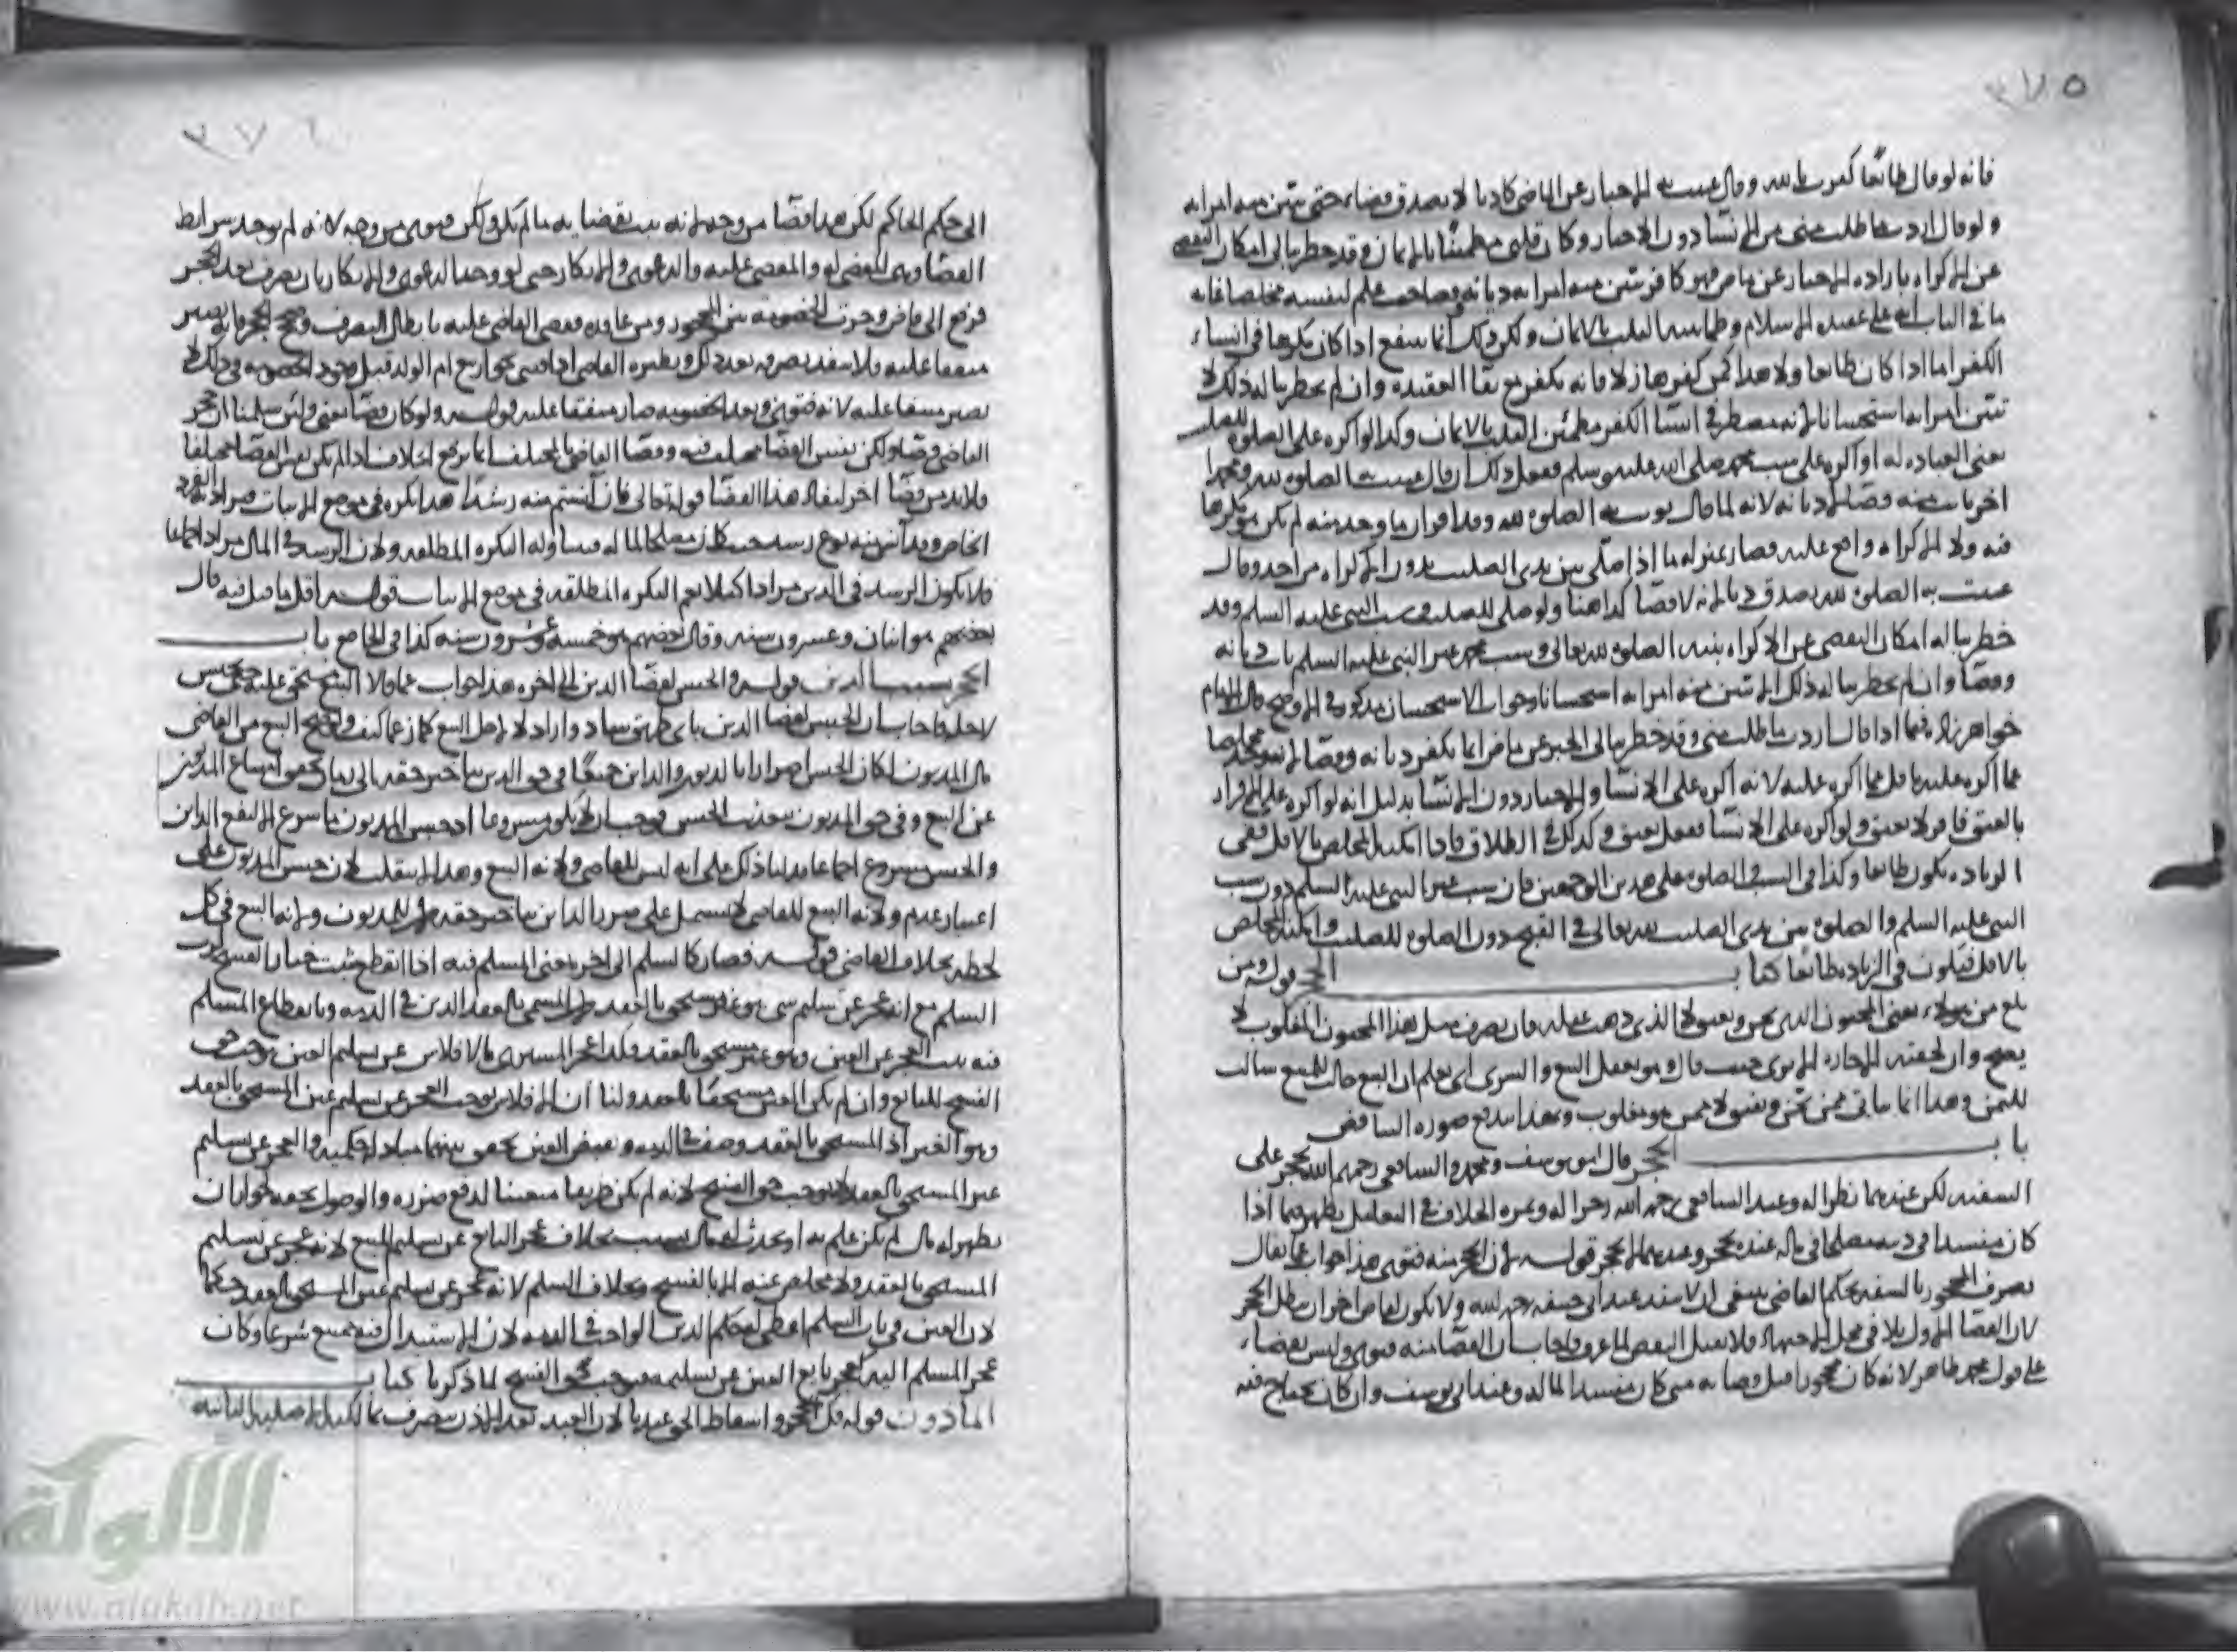 ٣٧٥
فانه لو قال طائعا كفرت بالله وقال عنيت به الاخبار عن الماضي كاذبا لا يصدق قضاء حتى تبين منه امراته
ولو قال اردت ما طلب مني من الانشا دون الاخبار وكان قلبي مطمئنا بالايمان وقد خطر ببالي امكان التفصي
عن الاكراه بارادة الاخبار عن ماض فهو كافر تبين منه امراته ديانة علم لنفسه مخلصا غايه
ما في الباب انه على عقيدة الاسلام القلب بالايمان ولكن ذلك انما ينفع اذا كان مكرها في انشاء
الكفر اما اذا كان طائعا فلا هذا كمن كفر هازلا فانه يكفر مع بقا العقيدة وان لم يخطر بباله ذلك لا
تبين امراته استحسانا لانه مضطر في انشا الكفر مطمئن القلب بالايمان وكذا لو اكره على الصلوة للصليب
يعني العبادة له او اكره على سب محمد صلى الله عليه وسلم ففعل ذلك ان قال عنيت بها الصلوة لله ومحمدا
اخر بانت منه قضا لا ديانة لانه لما قال نويت به الصلوة لله فقد اقر ان ما وجد منه لم يكن هو مكرها
فيه ولا الاكراه واقع عليه فصار بمنزلة ما اذا صلى بين يدي الصليب بدون اكراه من احد وقال
عنيت به الصلوة لله يصدق ديانة لا قضا كذا هنا ولو صلى للصليب وسب النبي عليه السلم وقد
خطر بباله امكان التفصي عن الاكراه بنية الصلوة لله تعالى وسب محمد غير النبي عليه السلم بانت ديانة
وقضا وان لم يخطر بباله ذلك لم تبن منه امراته استحسانا وجواب الاستحسان مذكور في الاوضح قال الامام
خواهر زاده فيما اذا قال اردت ما طلب مني وقد خطر ببالي الخبر عن ماض انما يكفر ديانة وقضا لانه وجد مخلصا
عما اكره عليه باقل مما اكره عليه لانه اكره على الانشا والاخبار دون الانشا بدليل انه لو اكره على الاقرار
بالعتق فاقر لا يعتق ولو اكره على الانشا ففعل يعتق وكذلك في الطلاق فاذا امكنه التخلص بالاقل ففي
الزيادة يكون طائعا وكذا في السب والصلوة على هذين الوجهين فان سب غير النبي عليه السلم دون سب
النبي عليه السلم والصلوة بين يدي الصليب لله تعالى في القبح دون الصلوة للصليب وامكنه التخلص
بالاقل فيكون في الزيادة طائعا كتاب الحجر قوله ومن
باع من هؤلاء يعني المجنون الذي يجن ويفيق لا الذي ذهب عقله فان تصرف مثل هذا المجنون المغلوب لا
يصح وان لحقته الاجازة الا يرى حيث قال وهو يعقل البيع والشرى اي يعلم ان البيع جالب للمبيع سالب
للثمن وهذا انما ياتي ممن يجن ويفيق لا ممن هو مغلوب وبهذا يندفع صورة التناقض
باب الحجر قال ابو يوسف ومحمد والشافعي رحمهم الله يحجر على
السفيه لكن عندهما نظرا له وعند الشافعي رحمه الله زجرا له وثمرة الخلاف في التعليل يظهر فيما اذا
كان مفسدا في دينه مصلحا في ماله عنده يحجر وعندهما لا يحجر قوله لان الحجر منه فتوى هذا جواب عما يقال
تصرف المحجور بالسفه بحكم القاضي ينبغي ان لا ينفذ عند ابي حنيفة رحمه الله ولا يكون لقاض اخر ان يبطل الحجر
لان القضا الاول يلاقي محل الاجتهاد فلا يقبل النقض فاجاب بان القضا منه فتوى وليس بقضاء
على قول محمد ظاهر لانه كان محجورا قبل قضائه متى كان مفسدا لماله وعند ابي يوسف وان كان يحتاج فيه
٣٧٦
الى حكم الحاكم لكن هذا قضا من وجه لانه يثبت بقضائه ما لم يكن ولكن فتوى من وجه لانه لم يوجد شرائط
القضا وهي المقضي له والمقضي عليه والدعوى والانكار حتى لو وجد الدعوى والانكار بان تصرف بعد الحجر
فرفع الى قاض وجرت الخصومة بين المحجور ومن عاقده فقضى القاضي عليه بابطال التصرف وصحح الحجر فانه يصير
متفقا عليه فلا ينفذ تصرفه بعد ذلك ونظيره القاضي اذا افتى بجواز بيع ام الولد قبل وجود الخصومة في ذلك لا
يصير متفقا عليه لانه فتوى وبعد الخصومة صار متفقا عليه قوله ولو كان قضا يعني ولئن سلمنا ان حجر
القاضي قضا ولكن نفس القضا مختلف فيه وقضا القاضي بالمختلف انما يرفع الخلاف اذا لم يكن نفس القضا مختلفا
فلا بد من قضا اخر لنفاذ هذا القضا قوله تعالى فان آنستم منه رشدا هذا نكرة في موضع الاثبات فيراد به الفرد
الخاص وقد آنس منه نوع رشد حيث كان مصلحا لماله فيتناوله النكرة المطلقة ولان الرشد في المال مراد اجماعا
فلا يكون الرشد في الدين مرادا كيلا يعم النكرة المطلقة في موضع الاثبات قوله اقل ما قيل فيه قال
بعضهم هو اثنان وعشرون سنة وقال بعضهم هو خمسة وعشرون سنة كذا في الخاص باب
الحجر بسبب الدين قوله والحبس لقضا الدين الى اخره هذا جواب عما قالا البيع مستحق عليه حتى يحبس
لاجله فاجاب بان الحبس لقضا الدين باي طريق شاء واراد لا لاجل البيع كما زعما كيف ولو صح البيع من القاضي
مال المديون لكان الحبس اضرارا بالمديون والداين جميعا في حق الدين بتاخير حقه الى زمان تحقق امتناع المديون
عن البيع وفي حق المديون بتعذيب الحبس فوجب ان لا يكون مشروعا اذ حبس المديون ما شرع الا لنفع الداين
والحبس مشروع اجماعا فدلنا ذلك على انه ليس للقاضي ولاية البيع وهذا لا ينقلب لان حبس المديون على
اعتبار عدم ولاية البيع للقاضي لا يشتمل على ضرر الداين بتاخير حقه المديون ولانه البيع في كل
لحظة بخلاف القاضي قوله فصار كالسلم الى اخره يعني المسلم فيه اذا انقطع يثبت خيار الفسخ لرب
السلم مع انه عجز عن تسليم شي هو غير مستحق بالعقد المستحق بالعقد الدين في الذمة وبانقطاع المسلم
فيه يثبت العجز عن العين وهو غير مستحق بالعقد فكذا عجز المشتري بالافلاس عن تسليم العين يوجب حق
الفسخ للبائع وان لم يكن العين مستحقا بالعقد ولنا ان الافلاس يوجب العجز عن تسليم غير المستحق بالعقد
وهو العين اذ المستحق بالعقد وصف في الذمة وبقبض العين يتحقق بينهما مبادلة حكمية والعجز عن تسليم
غير المستحق بالعقد لا يوجب حق الفسخ لانه لم يكن طريقا متعينا لدفع ضرره والوصول بحقه لجواز ان
يظهر له مال لم يكن علم به او يحدث له مال بسبب بخلاف عجز البائع عن تسليم المبيع لانه عجز عن تسليم
المستحق بالعقد ولا مخلص عنه الا بالفسخ وبخلاف السلم لانه عجز عن تسليم عين المستحق بالعقد حكما
لان العين في باب السلم اعطى له حكم الدين الواجب في الذمة لان الاستبدال فيه ممتنع شرعا وكان
عجز المسلم اليه كعجز بايع العين عن تسليمه فيوجب حق الفسخ لما ذكرنا كتاب
الماذون قوله فك الحجر واسقاط الحق عندنا لان العبد بعد الاذن يتصرف بالاهلية الاصلية الثابتة
الألوكة
www.alukah.net